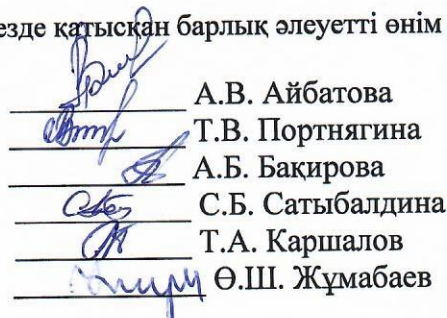 езде қатысқан барлық әлеуетті өнім
А.В. Айбатова
Т.В. Портнягина
А.Б. Бақирова
С.Б. Сатыбалдина
Т.А. Каршалов
Ө.Ш. Жұмабаев